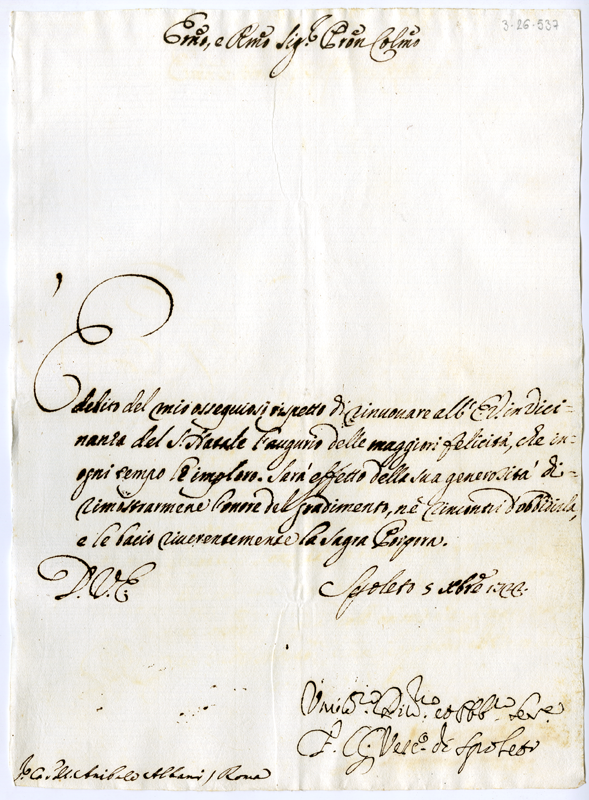 3-26-537
Emo, e Rmo Sig.r Pron Colmo
È debito del mio ossequiosis rispetto di rinuovare all'E.V. in vici=
nanza del S. Natale l'augurio delle maggiori felicità, che in=
ogni tempo le imploro. Sarà effetto della sua generosità di=
rimostrarmene l'onore del gradimento, nè rincontri d'obbidirla,
e le bacio riverentemente la Sagra Porpora.
D. V. E.
Spoleto 5 Xbre 1722.
Umil.o Div.mo ed Obb.mo Ser.e
Vesc.o di Spoleto
Sr. Card. Anibale Albani / Roma